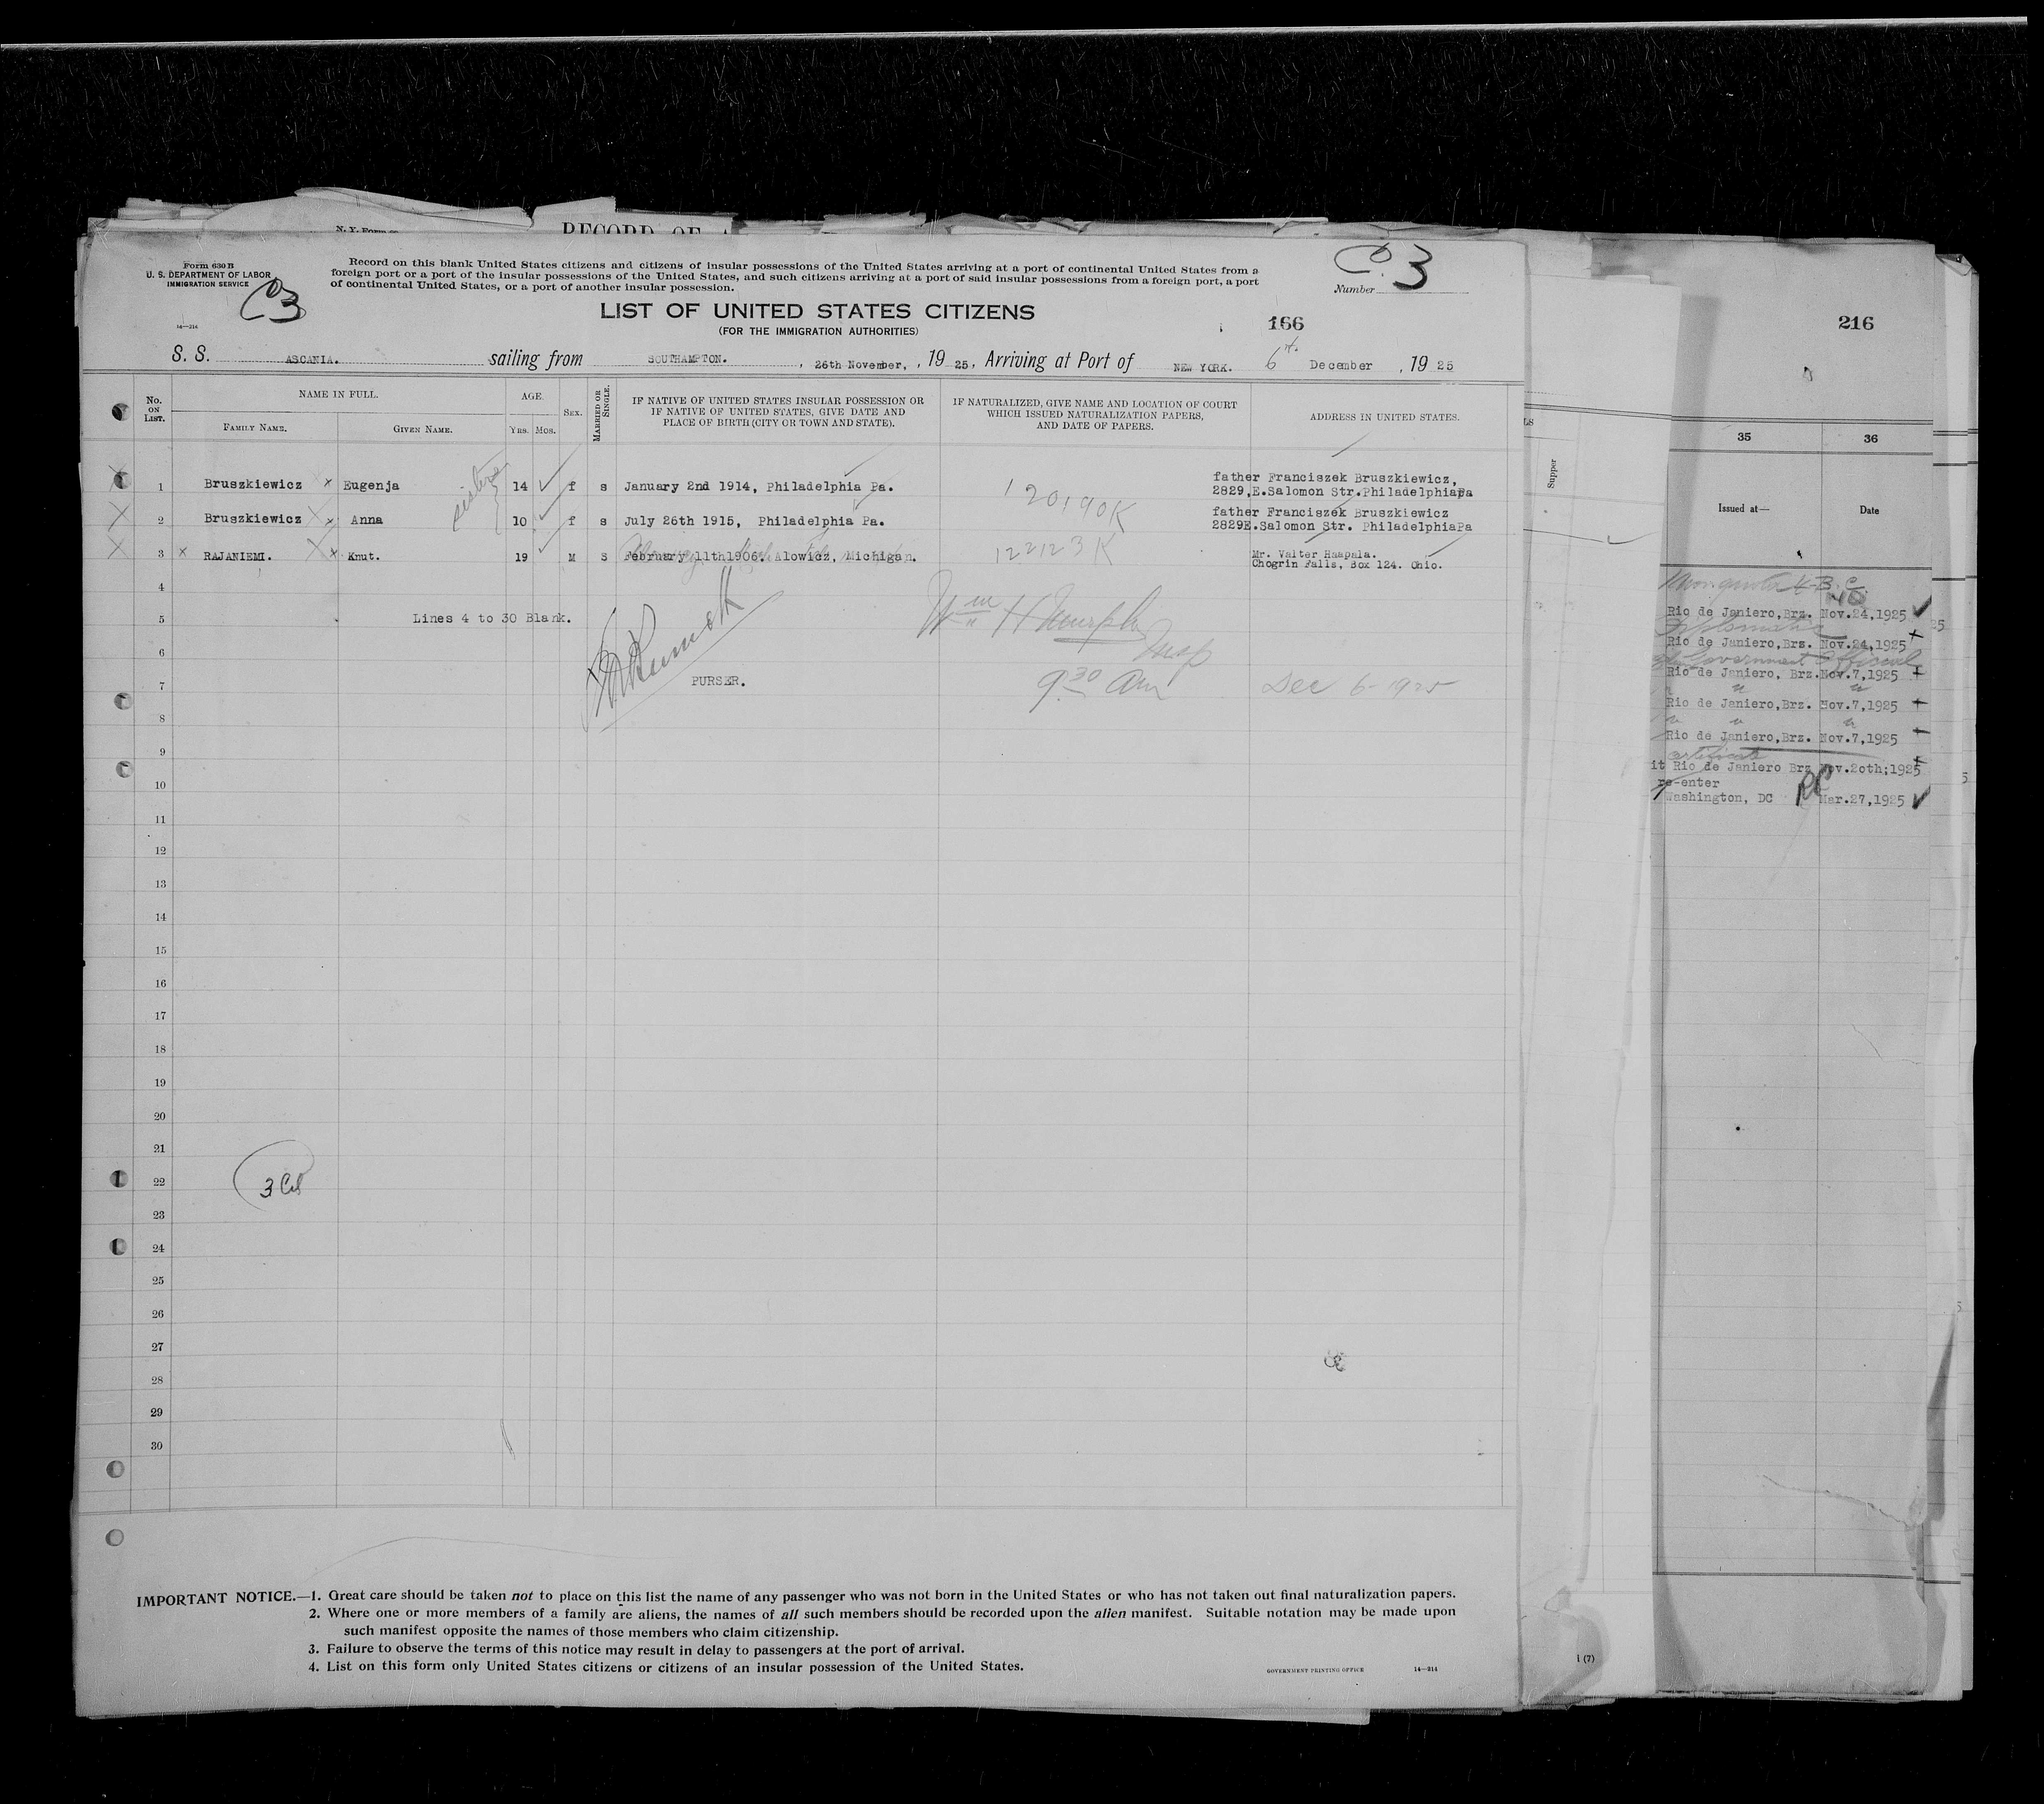 N. Y. Form
RECORD OF
Form 630 B
U. S. DEPARTMENT OF LABOR
IMMIGRATION SERVICE
C3
14—214
Record on this blank United States citizens and citizens of insular possessions of the United States arriving at a port of continental United States from a
foreign port or a port of the insular possessions of the United States, and such citizens arriving at a port of said insular possessions from a foreign port, a port
of continental United States, or a port of another insular possession.
C. 3
Number
LIST OF UNITED STATES CITIZENS
(FOR THE IMMIGRATION AUTHORITIES)
166
S. S. ASCANIA. sailing from SOUTHAMPTON. , 26th November, , 19 25, Arriving at Port of NEW YORK. 6th December , 19 25
No. ON LIST.
NAME IN FULL.
FAMILY NAME.
GIVEN NAME.
AGE.
YRS. MOS.
SEX.
MARRIED OR SINGLE.
IF NATIVE OF UNITED STATES INSULAR POSSESSION OR
IF NATIVE OF UNITED STATES, GIVE DATE AND
PLACE OF BIRTH (CITY OR TOWN AND STATE).
IF NATURALIZED, GIVE NAME AND LOCATION OF COURT
WHICH ISSUED NATURALIZATION PAPERS,
AND DATE OF PAPERS.
ADDRESS IN UNITED STATES.
sisters
1 Bruszkiewicz x Eugenja 14 f s January 2nd 1914, Philadelphia Pa. father Franciszek Bruszkiewicz,
2829,E.Salomon Str.PhiladelphiaPa
120190K
2 Bruszkiewicz x Anna 10 f s July 26th 1915, Philadelphia Pa. father Franciszek Bruszkiewicz
2829E.Salomon Str. PhiladelphiaPa
3 x RAJANIEMI. x Knut. 19 M S February 11th1906. Alowicz, Michigan. 122123K Mr. Valter Haapala.
Chogrin Falls, Box 124. Ohio.
4
5 Lines 4 to 30 Blank.
Wm H Murphy
Insp
6
7 PURSER. 9.30 Am Dec 6-1925
8
9
10
11
12
13
14
15
16
17
18
19
20
21
22
3
23
24
25
26
27
28
29
30
IMPORTANT NOTICE.—1. Great care should be taken not to place on this list the name of any passenger who was not born in the United States or who has not taken out final naturalization papers.
2. Where one or more members of a family are aliens, the names of all such members should be recorded upon the alien manifest. Suitable notation may be made upon
such manifest opposite the names of those members who claim citizenship.
3. Failure to observe the terms of this notice may result in delay to passengers at the port of arrival.
4. List on this form only United States citizens or citizens of an insular possession of the United States.
GOVERNMENT PRINTING OFFICE 14—214
LS
Supper
(7)
216
35 36
Issued at— Date
Rio de Janiero,Brz. Nov.24,1925
Diplomatic
Rio de Janiero,Brs. Nov.24,1925
Government Official
Rio de Janiero, Brz.Nov.7,1925
Rio de Janiero,Brz. Nov.7,1925
Rio de Janiero,Brz. Nov.7,1925
certificate
it Rio de Janiero Brz Nov.20th;1925
re-enter
Washington, DC Mar.27,1925
25
5
5